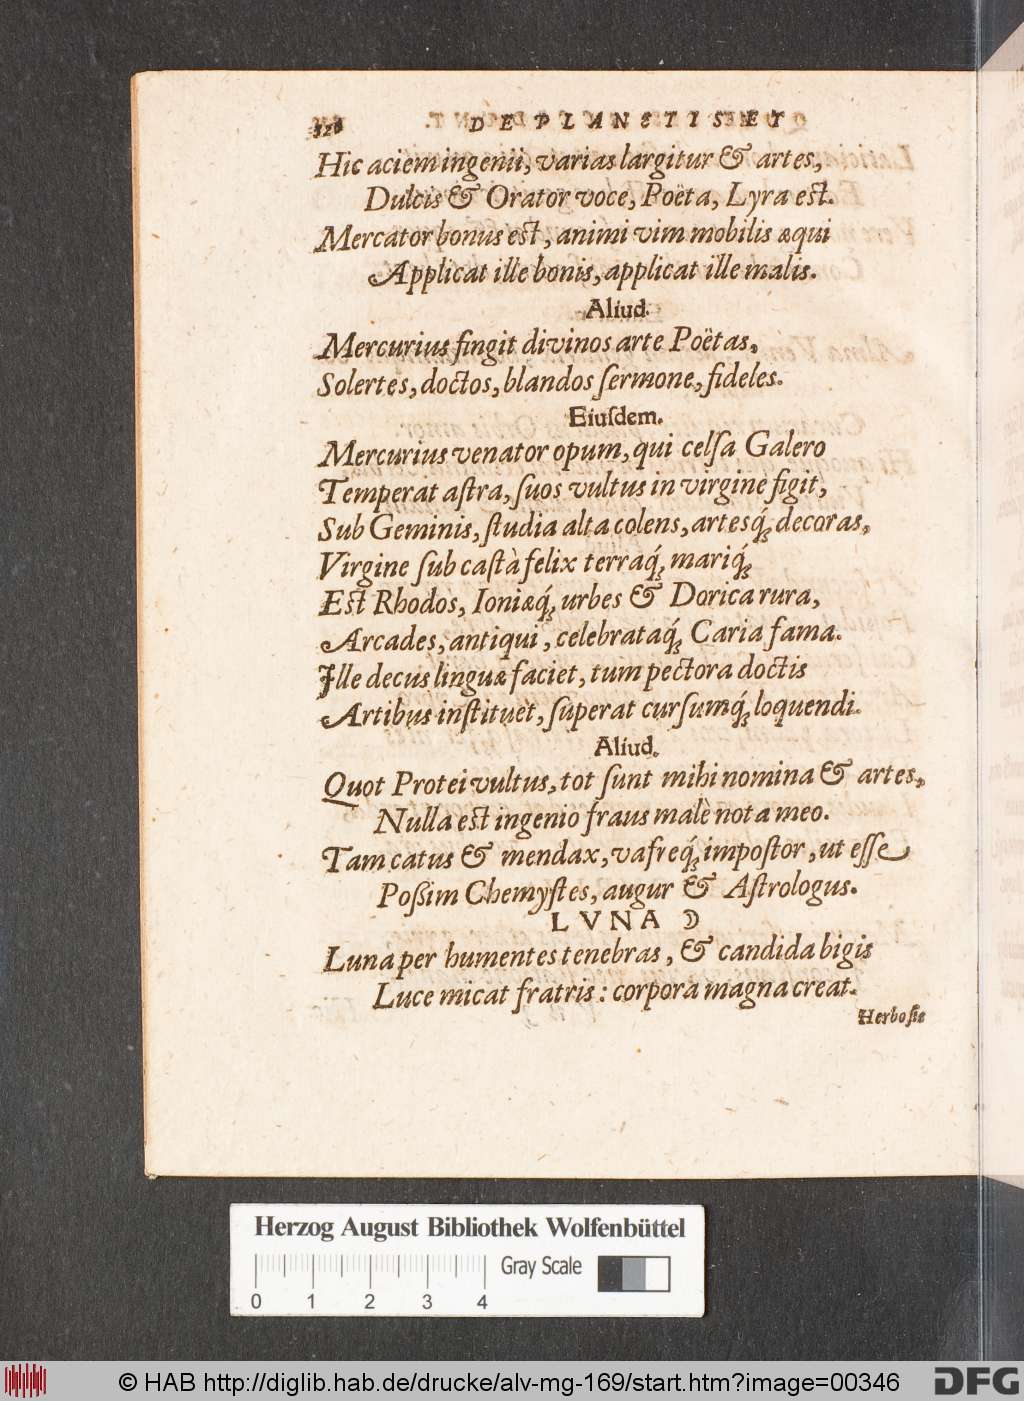 328 DE PLANETIS ET
Hic aciem ingenii, varias largitur & artes,
Dulcis & Orator voce, Poëta, Lyra est.
Mercator bonus est, animi vim mobilis æqui
Applicat ille bonis, applicat ille malis.
Aliud.
Mercurius fingit divinos arte Poëtas,
Solertes, doctos, blandos ſermone, fideles.
Eiuſdem.
Mercurius venator opum, qui celſa Galero
Temperat aſtra, ſuos vultus in virgine figit,
Sub Geminis, ſtudia alta colens, artesq́; decoras,
Virgine ſub caſtà felix terraq́; mariq́;
Est Rhodos, Ioniæq́; urbes & Dorica rura,
Arcades, antiqui, celebrataq́; Caria fama.
Ille decus linguæ faciet, tum pectora doctis
Artibus inſtituet, ſuperat curſumq́; loquendi.
Aliud.
Quot Protei vultus, tot ſunt mihi nomina & artes,
Nulla est ingenio fraus malè nota meo.
Tam catus & mendax, vafreq́; impoſtor, ut eſſe
Poßim Chemyſtes, augur & Aſtrologus.
LVNA ☽
Luna per humentes tenebras, & candida bigis
Luce micat fratris: corpora magna creat.
Herboſis
Herzog August Bibliothek Wolfenbüttel
Gray Scale
0 1 2 3 4
© HAB http://diglib.hab.de/drucke/alv-mg-169/start.htm?image=00346
DFG